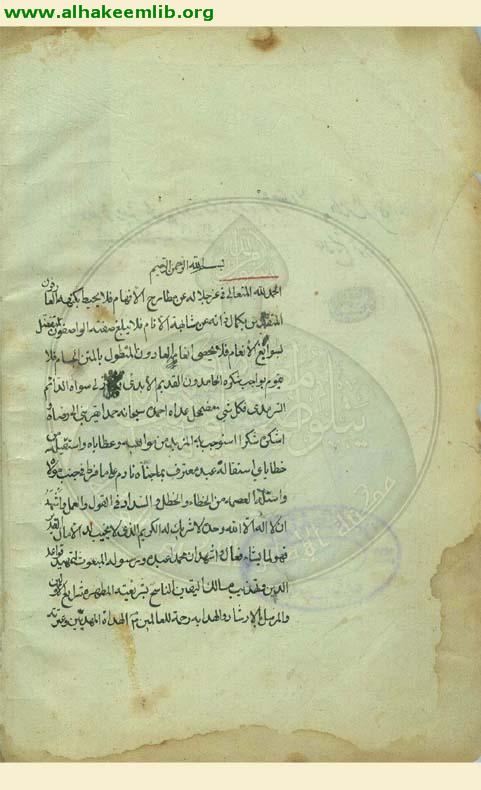 www.alhakeemlib.org
بسم الله الرحمن الرحيم
الحمد لله المتعالي في عز جلاله عن مطارح الافهام فلا يحيط بكنهه العارفون
المتقدس بكمال ذاته عن مشابهة الانام فلا يبلغ صفته الواصفون المتفضل
بسوابغ الانعام فلا يحصى انعامه العادون المتطول بالمنن الجسام فلا
يقوم بواجب شكره الحامدون القديم الابدي فلا ازلي سواه الدائم
السرمدي فكل شي مضمحل عداه احمده سبحانه حمدا يقربني الى رضاه و
اشكره شكرا استوجب به المزيد من مواهبه وعطاياه واستقيله من
خطاياي استقالة عبد معترف بما جناه نادم على ما فرط في جنب مولاه
واسئله العصمة من الخطاء والخطل والسداد في القول والعمل واشهد
ان لا اله الا الله وحده لا شريك له الكريم الذي لا يخيب لديه الامال القدير
فهو لما يشاء فعال واشهد ان محمدا عبده ورسوله المبعوث لتمهيد قواعد
الدين وتهذيب مسالك اليقين الناسخ بشريعته المطهره شرايع الاولين
والمرسل بالارشاد والهدايه رحمة للعالمين م الهداة المهديين وعترته